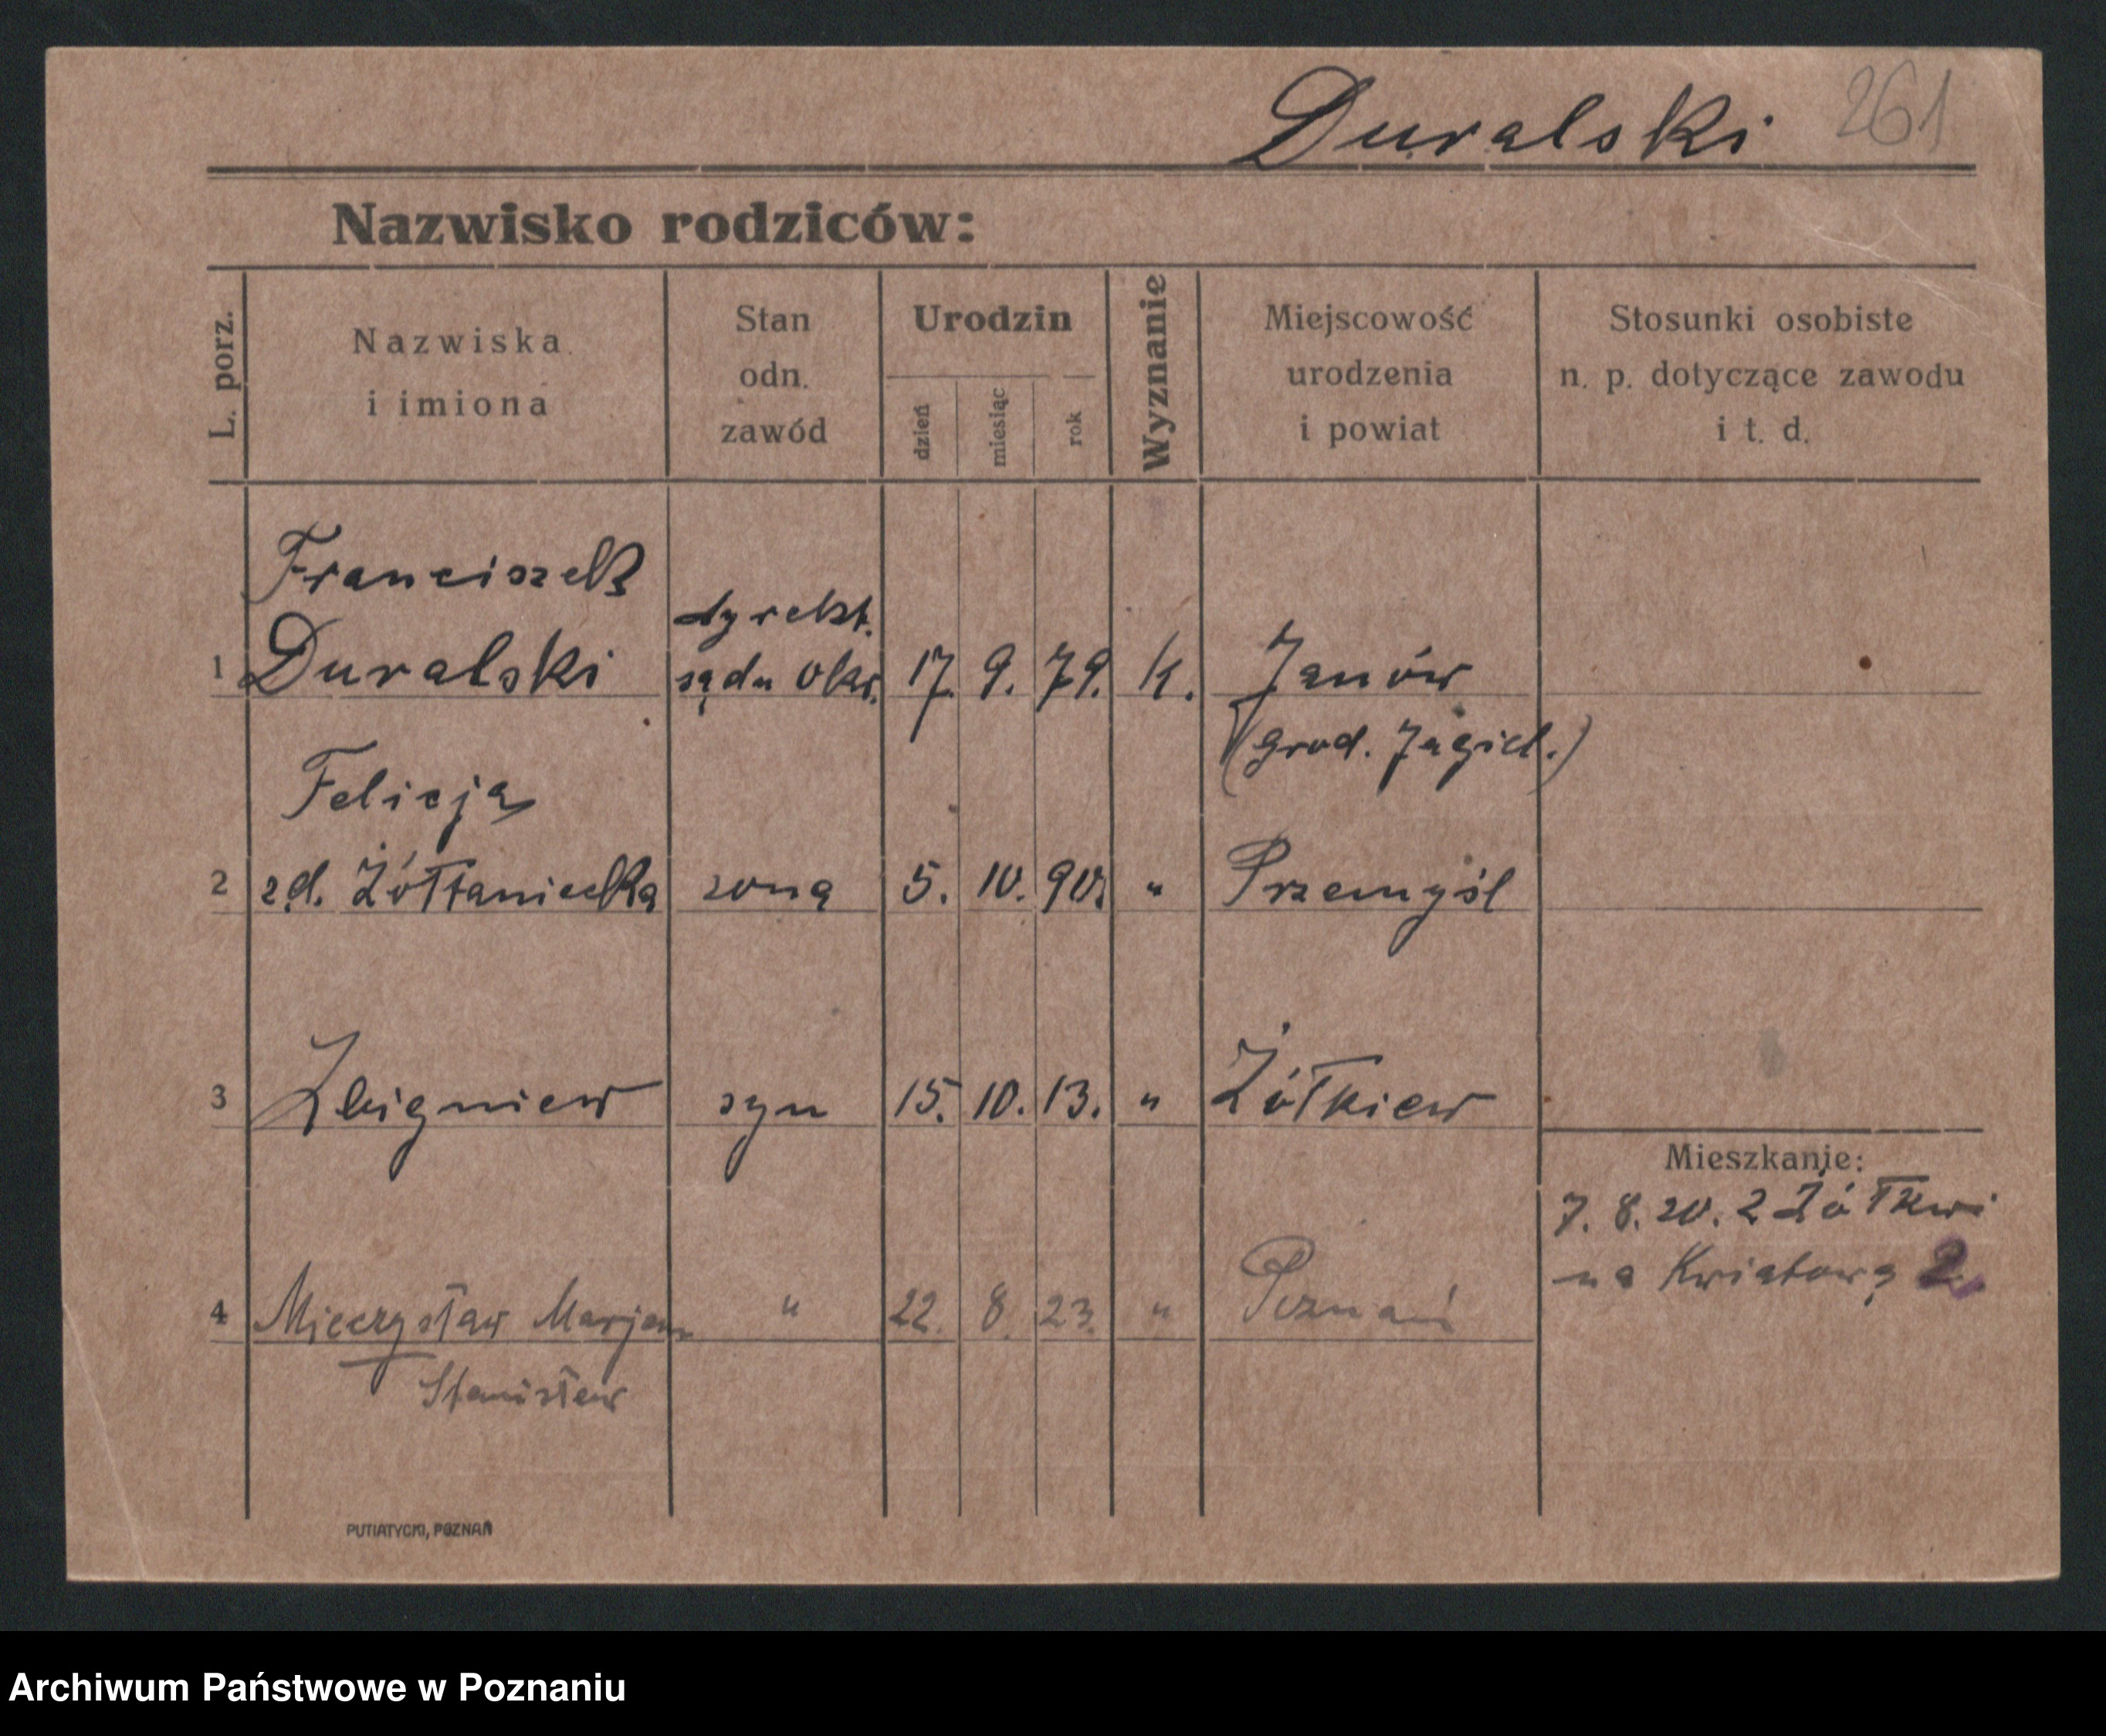 Duralski 261
Nazwisko rodziców:
L. porz.
Nazwiska
i imiona
Stan
odn.
zawód
Urodzin
dzień
miesiąc
rok
Wyznanie
Miejscowość
urodzenia
i powiat
Stosunki osobiste
n. p. dotyczące zawodu
i t. d.
Franciszek
dyrekt.
1 Duralski sądu okr. 17. 9. 79. k. Janów
(grod. Jagiel.)
Felicja
2 z d. Żółtaniecka żona 5. 10. 90. " Przemyśl
3 Zbigniew syn 15. 10. 13. " Żółkiew
Mieszkanie:
7. 8. 20. z Żółkwi
na Kwiatową 2.
4 Mieczysław Marjan " 22. 8. 23. " Poznań
Stanisław
PUTIATYCKI, POZNAŃ
Archiwum Państwowe w Poznaniu